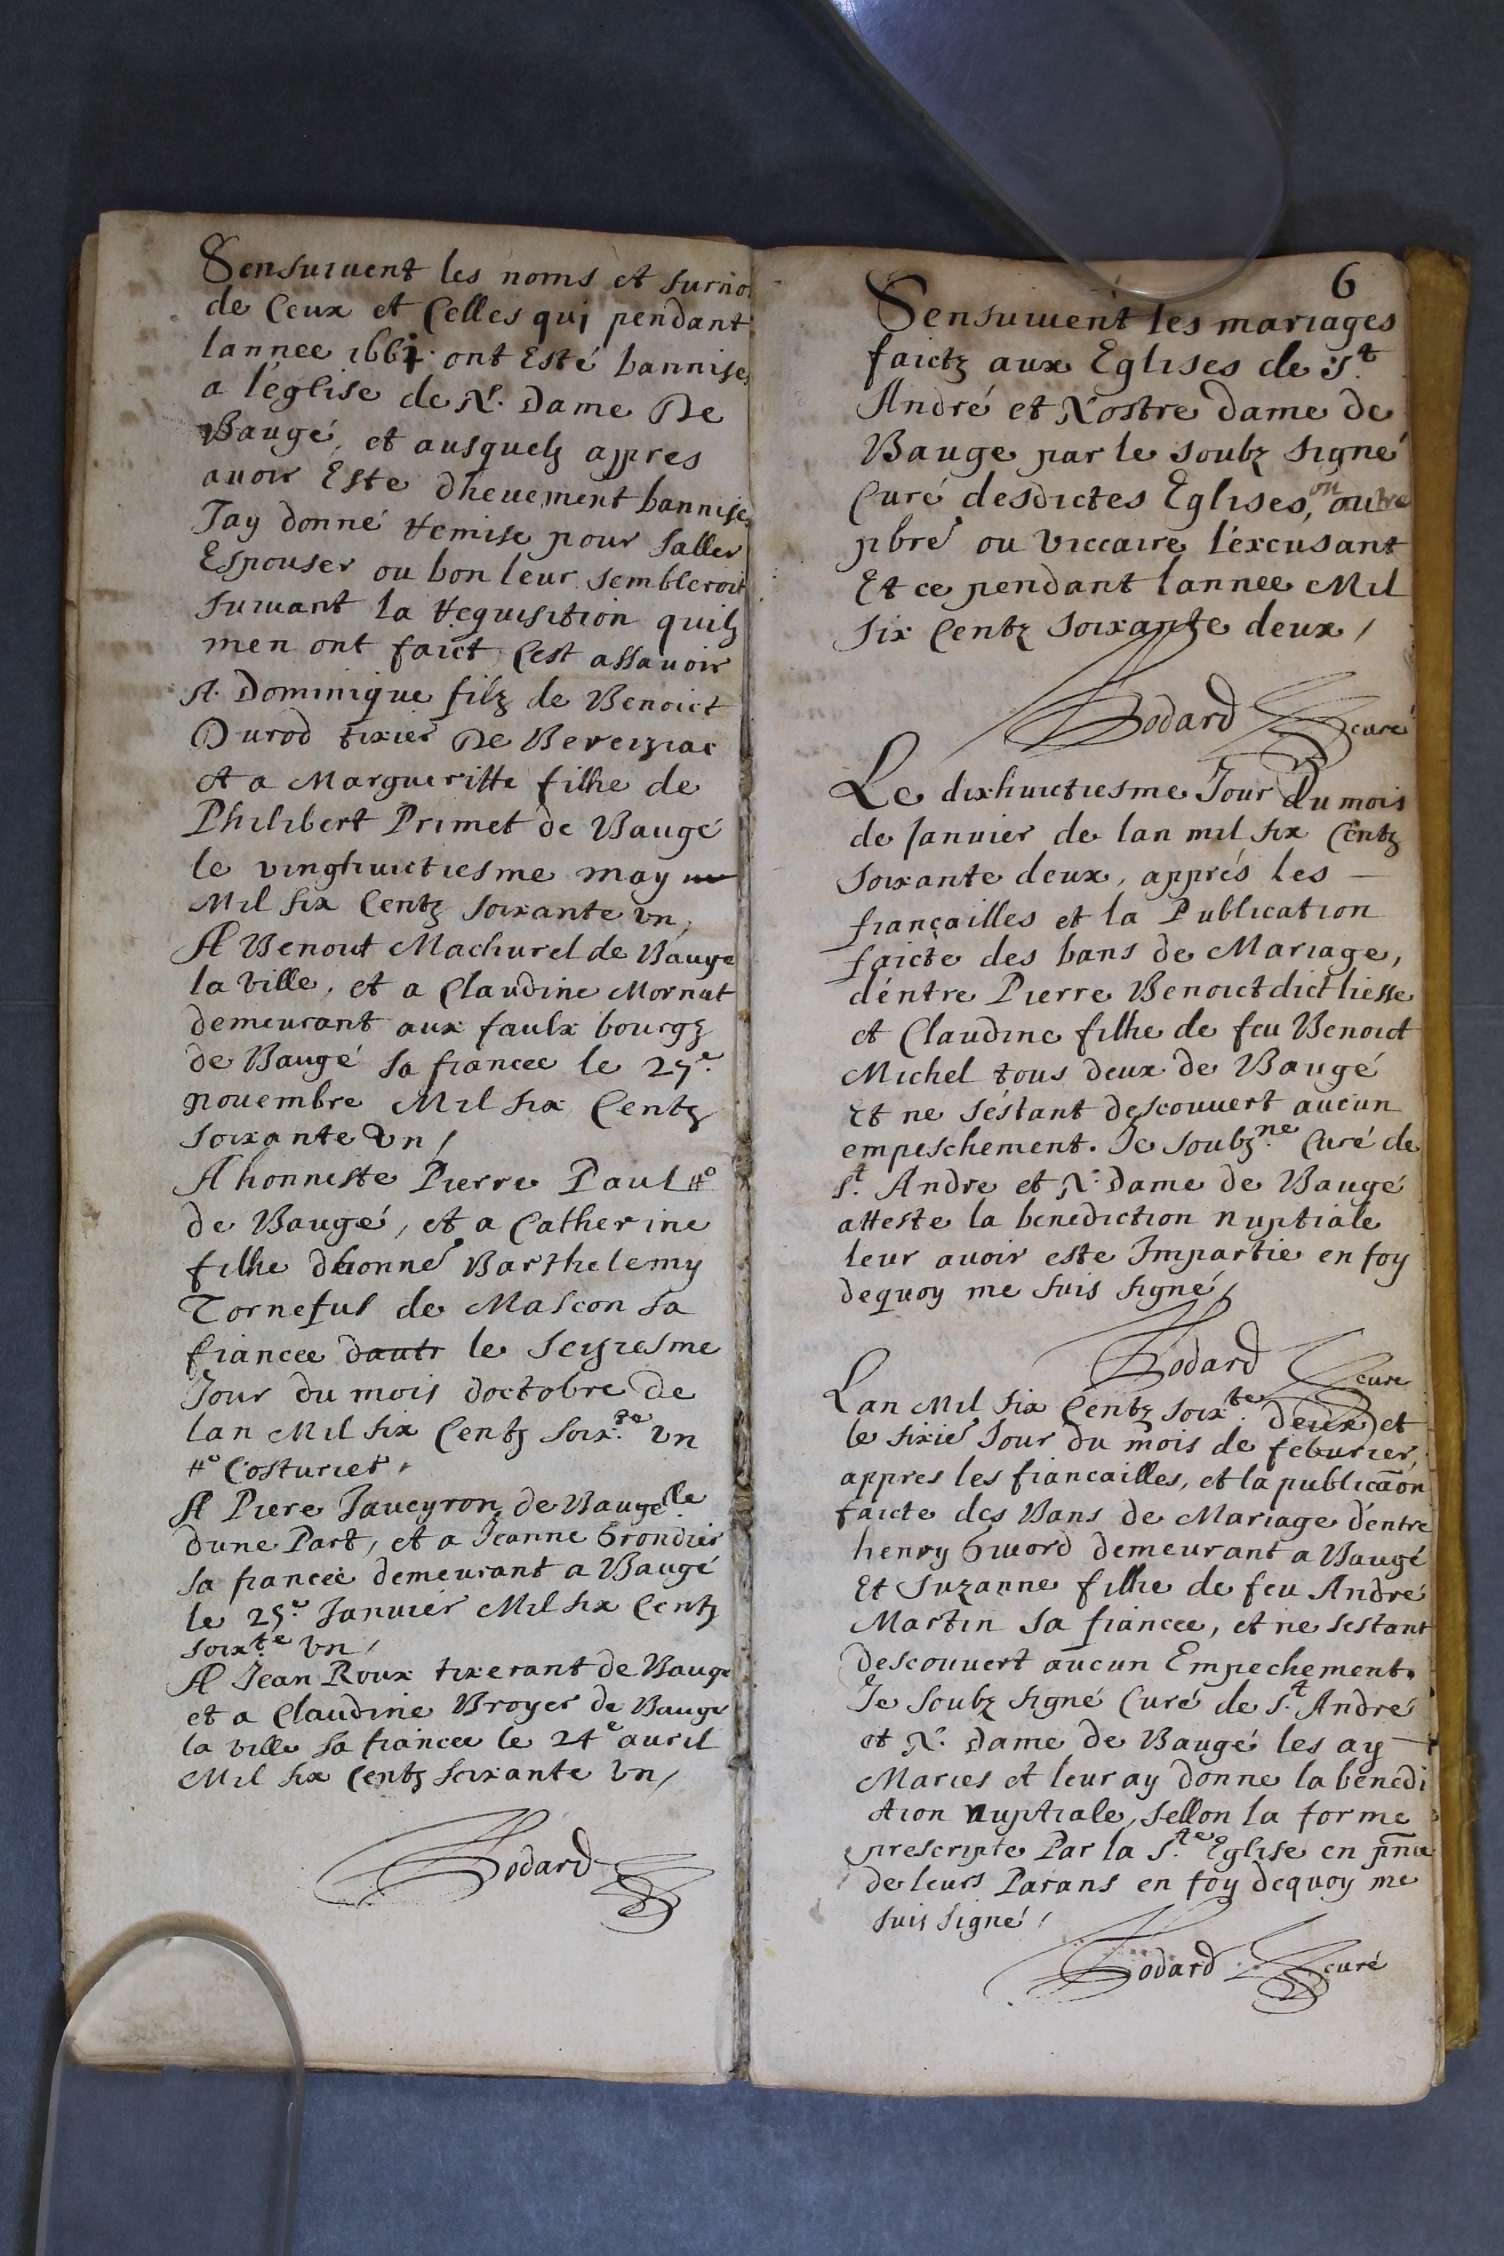 Sensuiuent les noms et surno
de Ceux et Celles qui pendant
lannee 1661 ont Esté bannises
a l'église de N. Dame De
Baugé, et ausquelz appres
auoir Este dheuement bannise
Jay donné Remise pour saller
Espouser ou bon leur sembleroit
suiuant la Requisition quilz
men ont faict, Cest assauoir
A. Dominique filz de Benoict
Durod tixier De Bereiziac
et a Margueritte filhe de
Philibert Primet de Baugé
le vinghuictiesme may
Mil six Centz soixante vn,
A Benoict Machurel de Bauge
la ville, et a Claudine Mornat
demeurant aux faulx bourgz
de Baugé sa fiancee le 27e.
nouembre Mil six Centz
soixante vn /
A honneste Pierre Paul #o
de Baugé, et a Catherine
filhe dhonne Barthelemy
Tornefus de Mascon sa
fiancee dautr le seiziesme
Jour du mois doctobre de
lan Mil six Centz soix.te vn
#o Costurier,
A Piere Jaueyron de Bauge le
dune Part, et a Jeanne Grondier
sa fianceé demeurant a Baugé
le 25e. Januier Mil six Centz
soix.te vn /
A Jean Roux tixerant de Bauge
et a Claudine Broyer de Bauge
la ville sa fiancee le 24e auril
Mil six Centz soixante vn /
Bodard
6
Sensuiuent les mariages
faictz aux Eglises de St.
André et Nostre dame de
Bauge par le soubz signé
Curé desdictes Eglises, ou autre
pbre ou viccaire l'excusant
Et ce pendant lannee Mil
six Centz soixante deux /
Bodard curé
Le dixhuictiesme Jour du mois
de Januier de lan mil six Centz
soixante deux, apprés les
françailles et la Publication
faicte des bans de Mariage,
d'éntre Pierre Benoict dict liesse
et Claudine filhe de feu Benoict
Michel tous deux de Baugé
Et ne séstant descouuert aucun
empeschement. Je soubz.ne Curé de
St. Andre et N. Dame de Baugé
atteste la benediction nuptiale
leur auoir este Impartie en foy
dequoy me suis signé /
Bodard cure
Lan Mil six Centz soix.te deux et
le sixie Jour du mois de feburier,
appres les fiancailles, et la publicaon
faicte des Bans de Mariage déntre
henry Giuord demeurant a Baugé
Et Suzanne filhe de feu André
Martin sa fiancee, et ne sestant
descouuert aucun Empechement.
Je soubz signé Curé de St. André
et N. Dame de Baugé les ay
Maries et leur ay donne la benedi
ction nuptiale, sellon la forme
prescripte Par la S.te Eglise en pnce
de leurs Parans en foy dequoy me
suis signé /
Bodard curé